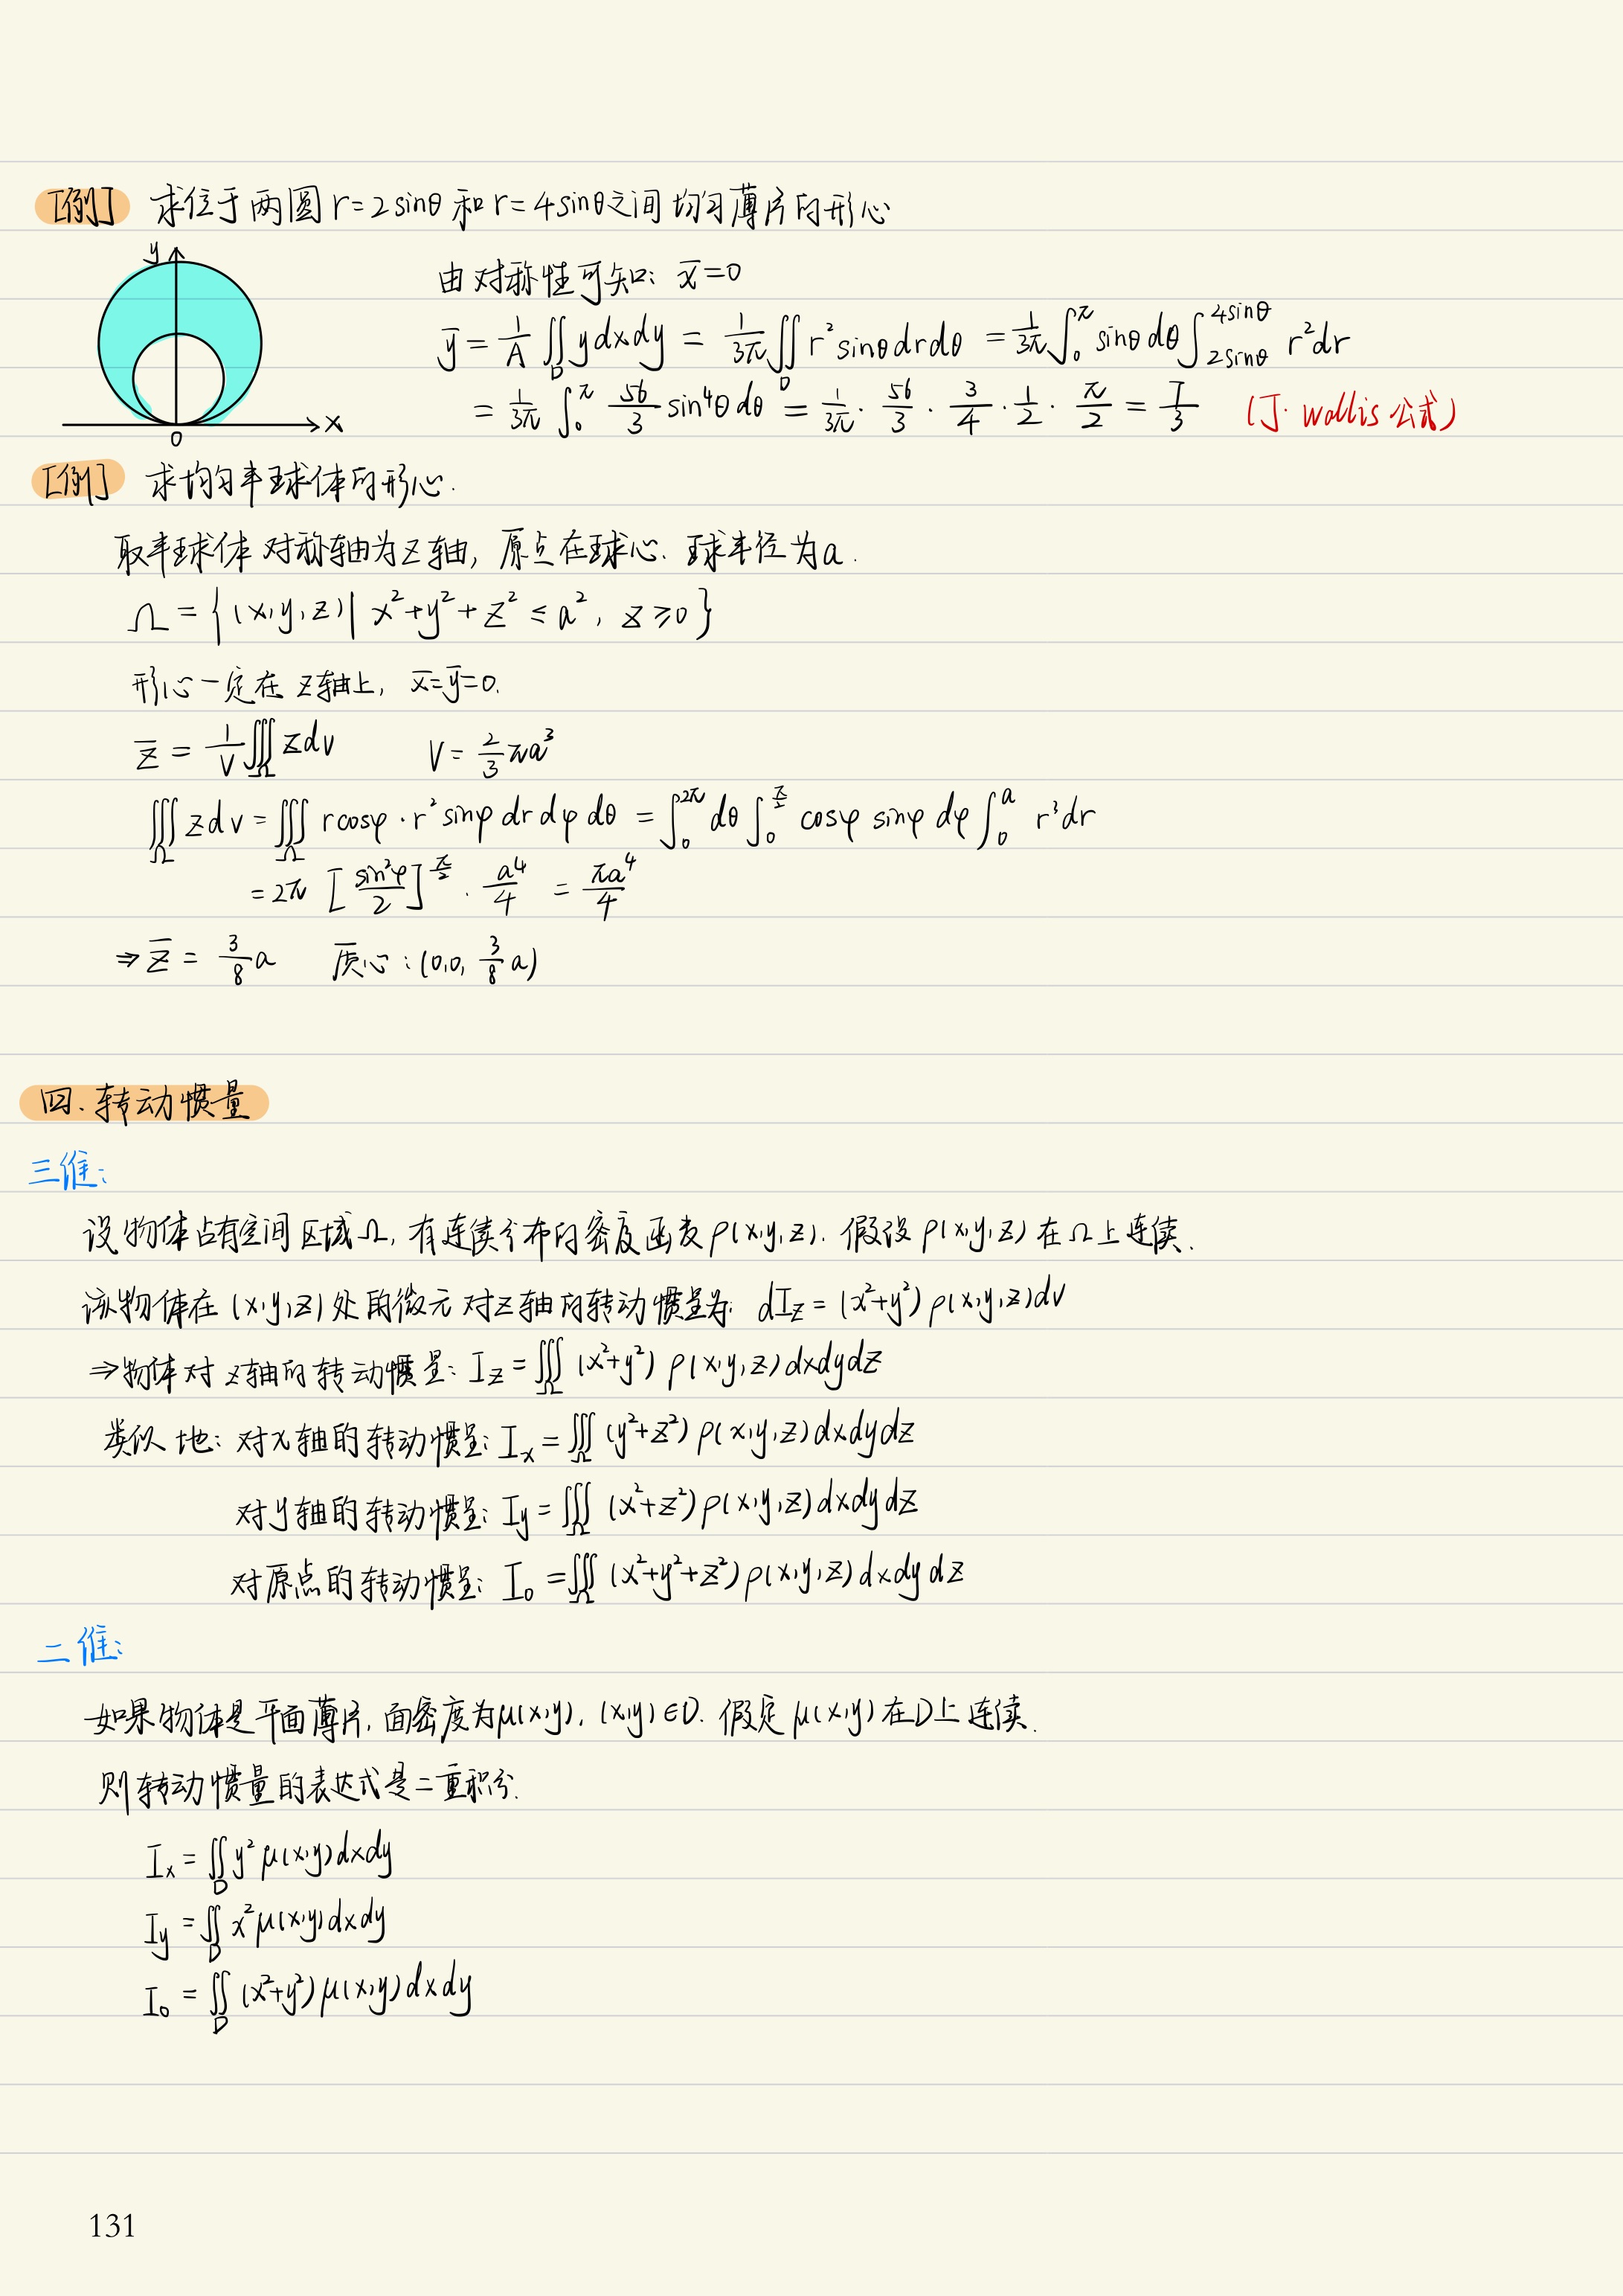 [例] 求位于两圆 r=2sinθ 和 r=4sinθ之间均匀薄片的形心
y
x
0
由对称性可知: x̄=0
ȳ = 1/A ∬_D ydxdy = 1/3π ∬_D r² sinθ dr dθ = 1/3π ∫_0^π sinθ dθ ∫_{2sinθ}^{4sinθ} r² dr
= 1/3π ∫_0^π 56/3 sin⁴θ dθ = 1/3π · 56/3 · 3/4 · 1/2 · π/2 = 7/3 (J. Wallis 公式)
[例] 求均匀半球体的形心.
取半球体对称轴为z轴, 原点在球心. 球半径为a.
Ω = {(x,y,z)| x²+y²+z² ≤ a², z≥0}
形心一定在 z轴上, x̄=ȳ=0.
z̄ = 1/V ∭_Ω zdv V = 2/3 πa³
∭_Ω zdv = ∭_Ω rcosφ · r² sinφ dr dφ dθ = ∫_0^{2π} dθ ∫_0^{π/2} cosφ sinφ dφ ∫_0^a r³dr
= 2π [sin²φ/2]^{π/2} · a⁴/4 = πa⁴/4
⇒ z̄ = 3/8 a 质心: (0,0, 3/8 a)
四. 转动惯量
三维:
设物体占有空间区域Ω, 有连续分布的密度函数ρ(x,y,z). 假设ρ(x,y,z)在Ω上连续.
该物体在(x,y,z)处的微元对z轴的转动惯量为: dI_z = (x²+y²) ρ(x,y,z)dv
⇒物体对z轴的转动惯量: I_z = ∭_Ω (x²+y²) ρ(x,y,z)dxdydz
类似地: 对x轴的转动惯量: I_x = ∭_Ω (y²+z²) ρ(x,y,z)dxdydz
对y轴的转动惯量: I_y = ∭_Ω (x²+z²) ρ(x,y,z)dxdydz
对原点的转动惯量: I_0 = ∭_Ω (x²+y²+z²) ρ(x,y,z)dxdydz
二维:
如果物体是平面薄片, 面密度为μ(x,y), (x,y)∈D. 假定μ(x,y)在D上连续.
则转动惯量的表达式是二重积分.
I_x = ∬_D y² μ(x,y)dxdy
I_y = ∬_D x² μ(x,y)dxdy
I_0 = ∬_D (x²+y²) μ(x,y)dxdy
131